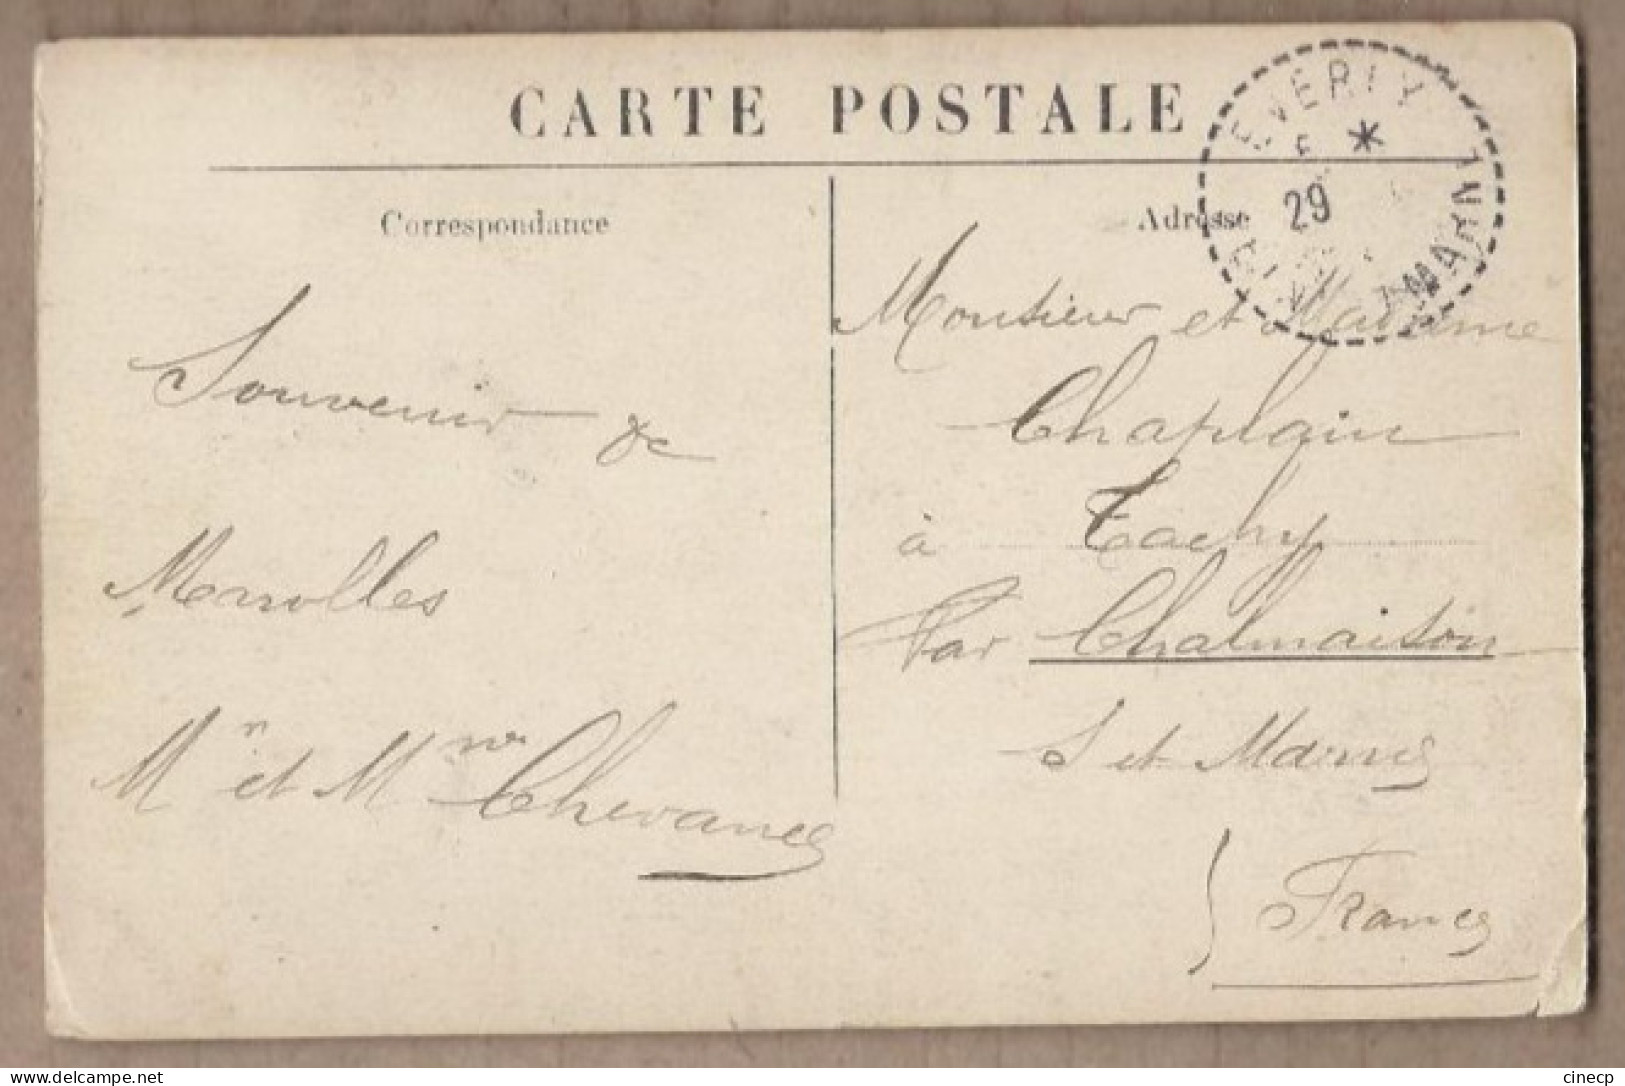 CARTE POSTALE
Correspondance
Souvenir de
Merolles
Mr et Mme Chevance
Adresse
Monsieur et Madame
Chaplain
à Tachy
Par Chalmaison
S et Marne
France
EVERLY
29
MARNE
delcampe.net
cinecp